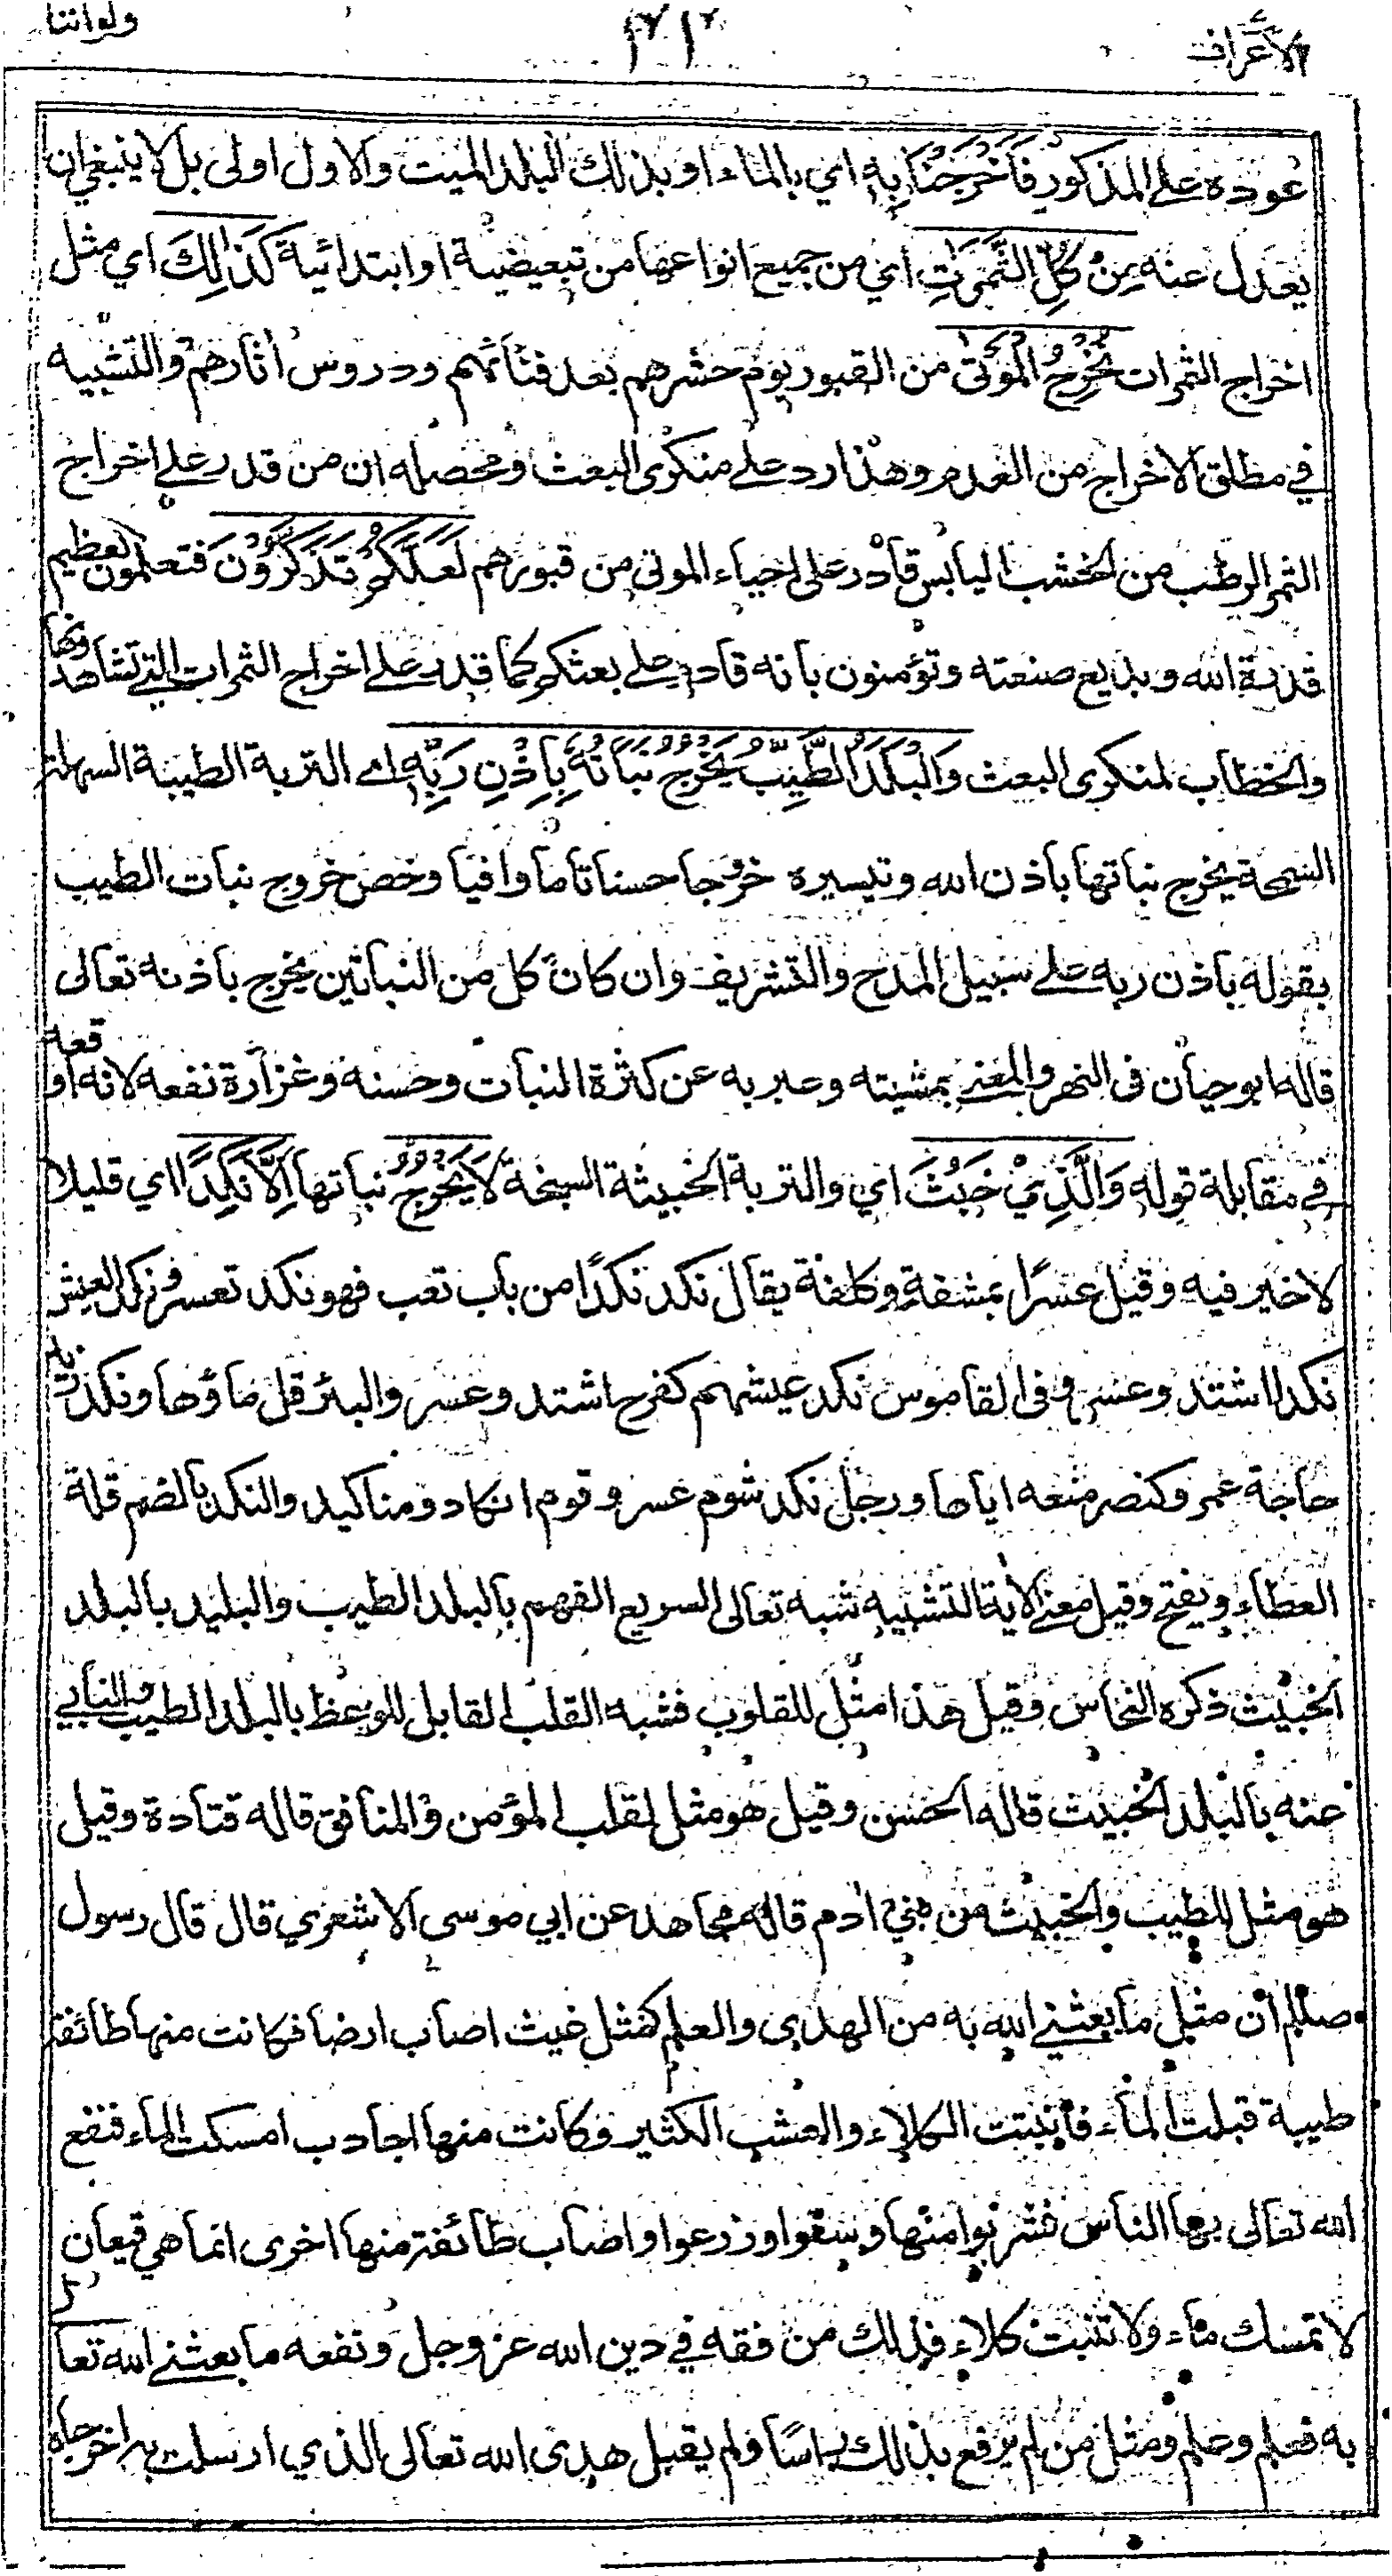 الأعراف ٣١٢ ولواننا
عوده على المذكور فَأَخْرَجْنَا بِهِ اي بالماء او بذلك البلد الميت والاول اولى بل لا ينبغي ان
يعدل عنه مِنْ كُلِّ الثَّمَرَاتِ اي من جميع انواعها من تبعيضية او ابتدائية كَذَالِكَ اي مثل
اخراج الثمرات نُخْرِجُ الْمَوْتَى من القبور يوم حشرهم بعد فنائهم ودروس اثارهم والتشبيه
في مطلق الاخراج من العدم وهذا رد على منكرى البعث ومحصله ان من قدر على اخراج
الثمر الرطب من الخشب اليابس قادر على احياء الموتى من قبورهم لَعَلَّكُمْ تَذَكَّرُوْنَ فتعلمون عظيم
قدرة الله وبديع صنعته وتؤمنون بانه قادر على بعثكم كما قدر على اخراج الثمرات التي تشاهدونها
والخطاب لمنكرى البعث وَالْبَلَدُ الطَّيِّبُ يَخْرُجُ نَبَاتُهُ بِاِذْنِ رَبِّهِ اي التربة الطيبة السهلة
السمحة يخرج نباتها باذن الله وتيسيره خروجا حسنا تاما وافيا وخص خروج نبات الطيب
بقوله باذن ربه على سبيل المدح والتشريف وان كان كل من النباتين يخرج باذنه تعالى
قاله ابو حيان فى النهر والمعنى بمشيته وعبر به عن كثرة النبات وحسنه وغزارة نفعه لانه اوقعه
في مقابلة قوله وَالَّذِيْ خَبُثَ اي والتربة الخبيثة السبخة لَا يَخْرُجُ نباتها اِلَّا نَكِدًا اي قليلا
لا خير فيه وقيل عسرا بمشقة وكلفة يقال نكد نكدًا من باب تعب فهو نكد تعسر ونكد العيش
نكدا اشتد وعسر وفى القاموس نكد عيشهم كفرح اشتد وعسر والبئر قل ماؤها ونكد زيد
حاجة عمرو كنصر منعه اياها ورجل نكد شوم عسر وقوم انكاد ومناكيد والنكد بالضم قلة
العطاء ويفتح وقيل معنى الاية التشبيه شبه تعالى السريع الفهم بالبلد الطيب والبليد بالبلد
الخبيث ذكره النحاس وقيل هذا مثل للقلوب فشبه القلب القابل للوعظ بالبلد الطيب والنابي
عنه بالبلد الخبيث قاله الحسن وقيل هو مثل لقلب المؤمن والمنافق قاله قتادة وقيل
هو مثل للطيب والخبيث من بني ادم قاله مجاهد عن ابي موسى الاشعري قال قال رسول
صللم ان مثل ما بعثني الله به من الهدى والعلم كمثل غيث اصاب ارضا فكانت منها طائفة
طيبة قبلت الماء فانبتت الكلاء والعشب الكثير وكانت منها اجادب امسكت الماء فنفع
الله تعالى بها الناس فشربوا منها وسقوا وزرعوا واصاب طائفة منها اخرى انما هي قيعان
لا تمسك ماء ولا تنبت كلاء فذلك من فقه في دين الله عز وجل ونفعه ما بعثني الله تعا
به فعلم وعلم ومثل من لم يرفع بذلك راسًا ولم يقبل هدى الله تعالى الذي ارسلت به اخرجاه